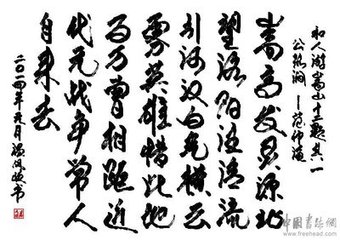 和人游嵩山十二题其一
公路涧——范仲淹
嵩高发灵源北
望洛阳注清流
引河汉白气横云
雾英雄惜此地
百万曾相距近
代无战争常人
自来去
二〇一四年元月温凤书
中国书法网
www.freehead.com